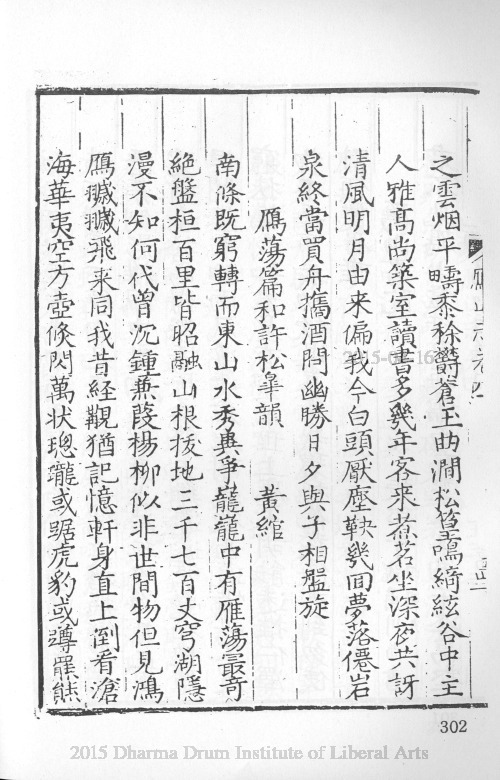 之雲烟平疇黍稌欝蒼玉曲澗松篁鳴綺絃谷中主
人雅髙尚築室讀書多幾年客来煮茗坐深夜共訝
清風明月由来偏我今白頭厭塵鞅幾囬夢落僊岩
泉終當買舟攜酒問幽勝日夕與子相盤旋
鴈蕩篇和許松臯韻　黃綰
南條既窮轉而東山水秀異爭蘢蓯中有雁蕩最奇
絶盤桓百里皆昭融山根拔地三千七百丈穹湖隱
漫不知何代曾沉鍾蒹葭楊柳似非世間物但見鴻
鴈𦐂𦐂飛来同我昔經觀猶記憶軒身直上倒看滄
海華夷空方壺倐閃萬状璁瓏或踞虎豹或蹲羆熊
302
2015 Dharma Drum Institute of Liberal Arts